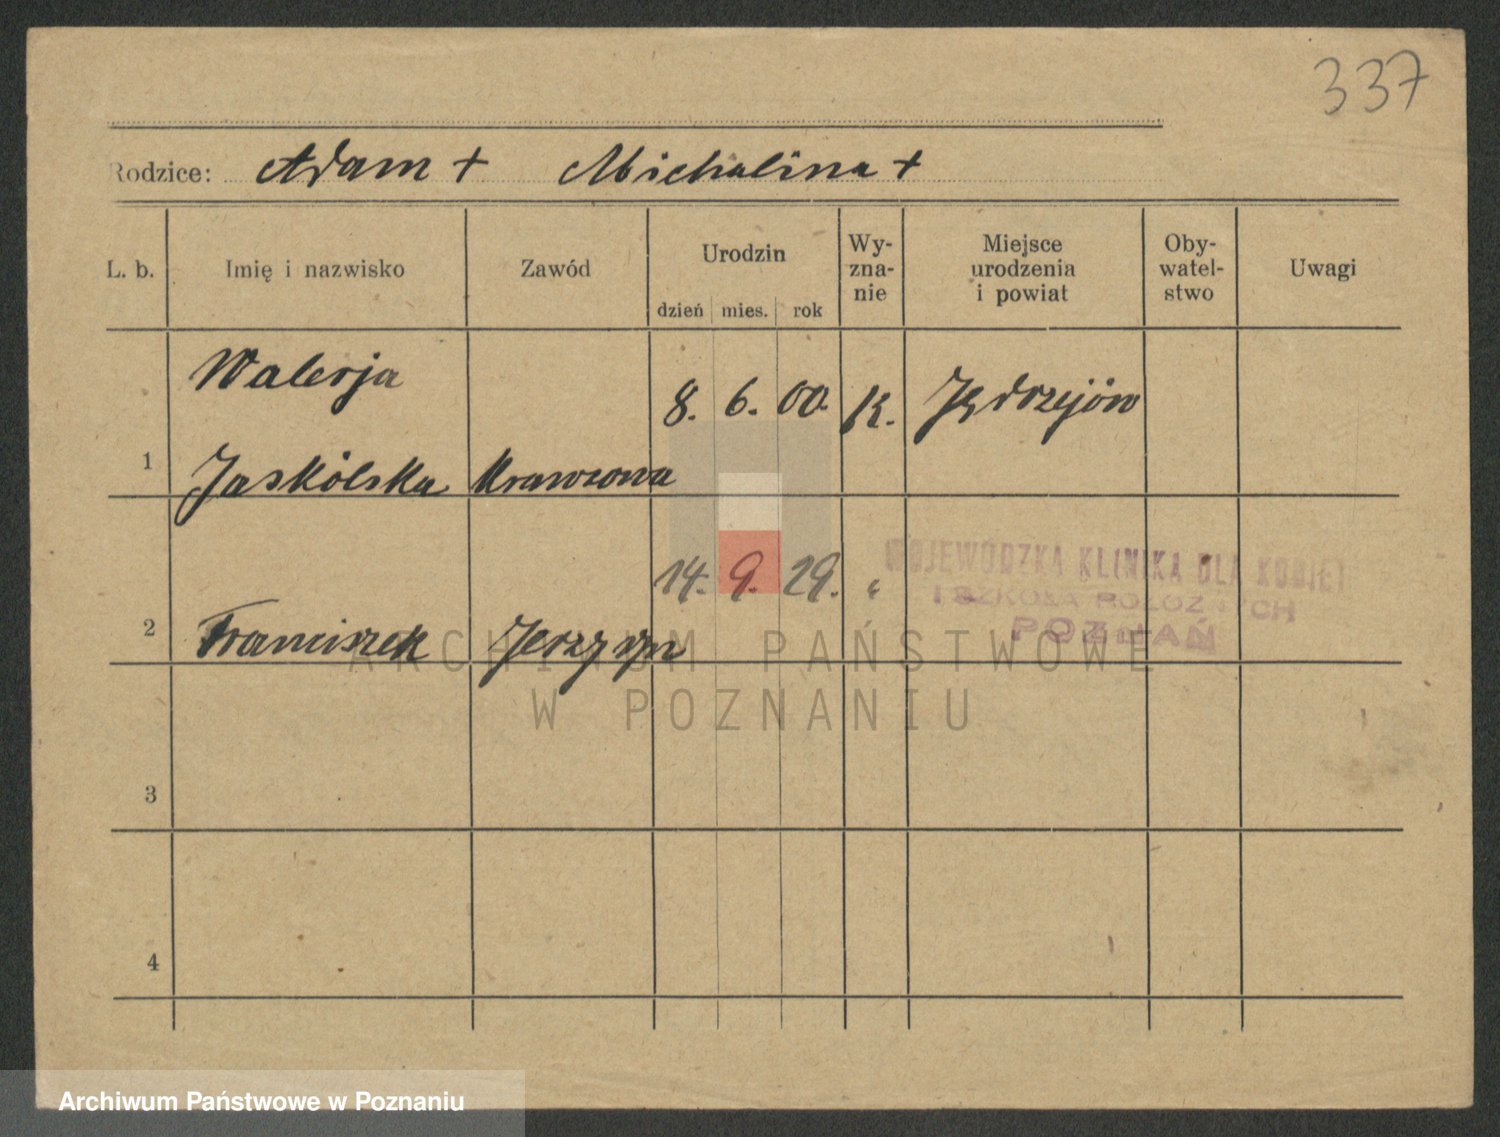 337
Rodzice: Adam + Michalina +
L. b. Imię i nazwisko Zawód Urodzin dzień mies. rok Wy-zna-nie Miejsce urodzenia i powiat Oby-watel-stwo Uwagi
Walerja 8. 6. 00. K. Jędrzejów
1 Jaskólska Krawcowa
14. 9. 29. "
WOJEWÓDZKA KLINIKA DLA KOBIET
I SZKOŁA POŁOŻNYCH
POZNAŃ
2 Franciszek Jerzy syn
ARCHIWUM PAŃSTWOWE
W POZNANIU
3
4
Archiwum Państwowe w Poznaniu